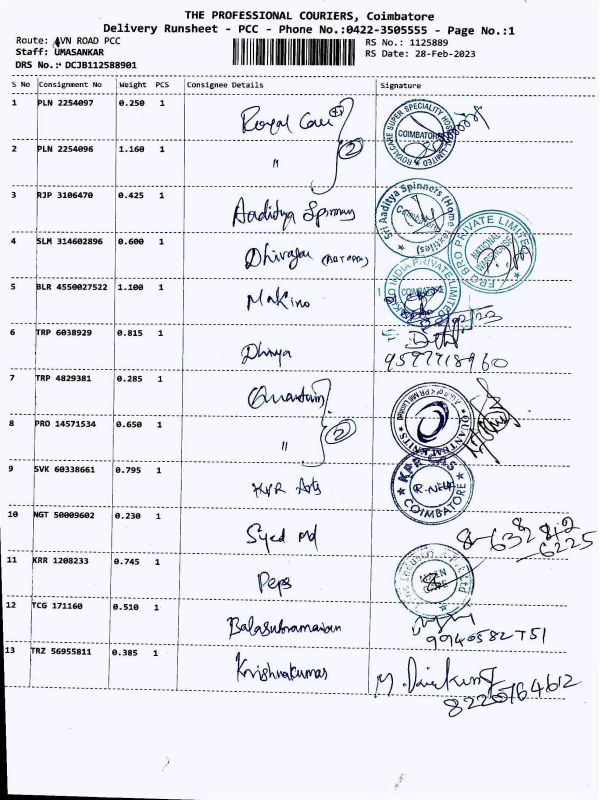 THE PROFESSIONAL COURIERS, Coimbatore
Delivery Runsheet - PCC - Phone No.:0422-3505555 - Page No.:1
Route: AVN ROAD PCC
Staff: UMASANKAR
DRS No.: DCJB112588901
RS No.: 1125889
RS Date: 28-Feb-2023
S No Consignment No Weight PCS Consignee Details Signature
1 PLN 2254097 0.250 1 Royal Care
ROYALCARE SUPER SPECIALITY HOSPITAL LIMITED
COIMBATORE
2 PLN 2254096 1.160 1 " 2
3 RJP 3106470 0.425 1 Aaditya Spinners
Sri Aaditya Spinners (Home Textiles)
4 SLM 314602896 0.600 1
FRO BRO PRIVATE LIMITED
NATIONAL
5 BLR 4550027522 1.100 1 Makino
INDIA PRIVATE LIMITED
COIMBATORE
6 TRP 6038929 0.815 1 Dhivya
9597718960
7 TRP 4829381 0.285 1 Quantum
QUANTUM KNITS
8 PRO 14571534 0.650 1 " 2
9 SVK 60338661 0.795 1 KPR Arts
KPR
COIMBATORE
10 NGT 50009602 0.230 1 Syed Md
6225
11 KRR 1208233 0.745 1 Peps
12 TCG 171160 0.510 1 Balasubramanian
9940582751
13 TRZ 56955811 0.385 1 Krishnakumar
8220764612